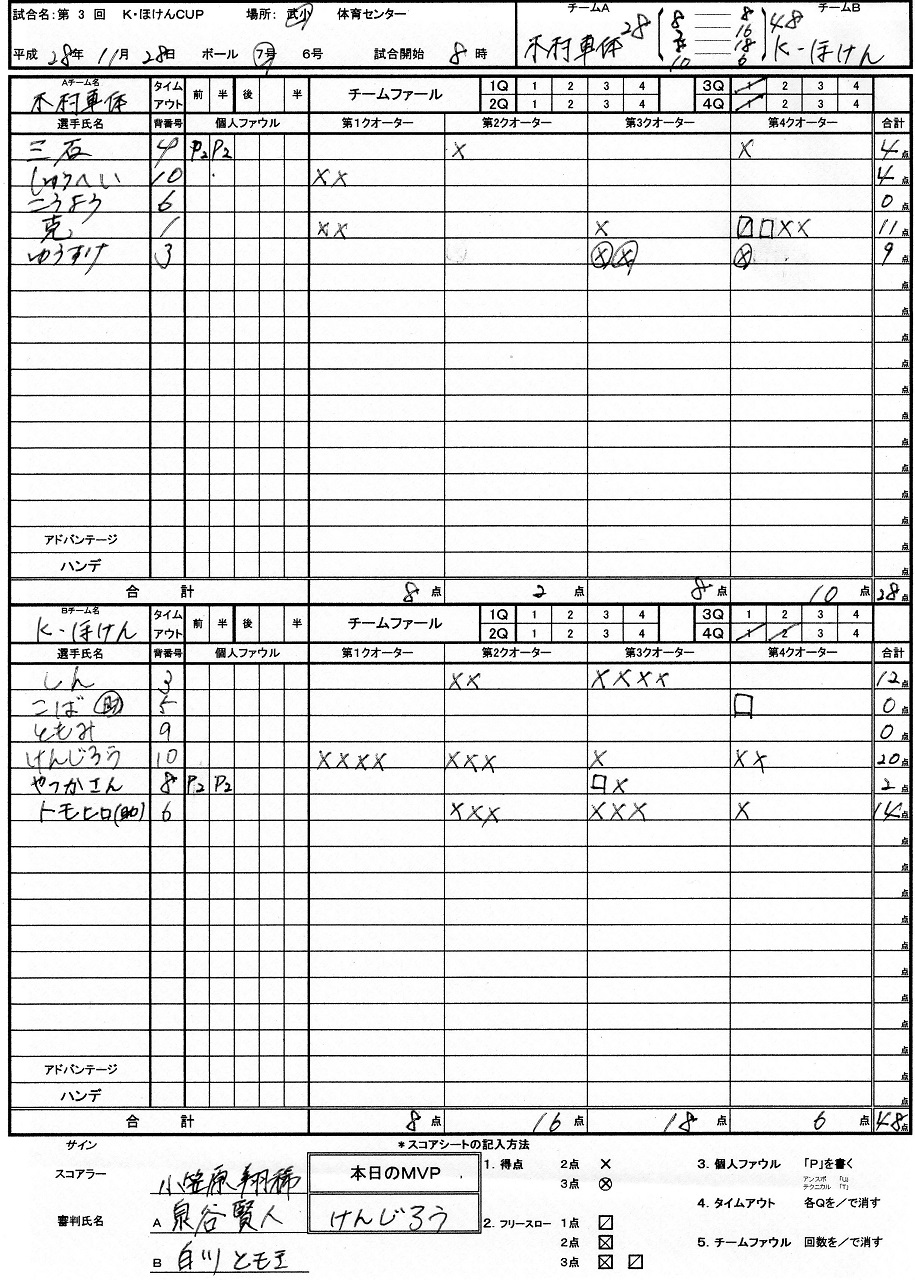 試合名:第 3 回 K・ほけんCUP 場所: 武小 体育センター
平成 28年 11月 28日 ボール 7号 6号 試合開始 8 時
チームA チームB
木村車体 28 48 K-ほけん
8 8
2 16
8 18
10 6
Aチーム名 木村車体 タイムアウト 前 半 後 半 チームファール 1Q 1 2 3 4 3Q 1 2 3 4
2Q 1 2 3 4 4Q 1 2 3 4
選手氏名 背番号 個人ファウル 第1クオーター 第2クオーター 第3クオーター 第4クオーター 合計
三石 4 P2 P2 × × 4点
しゅうへい 10 ×× 4点
こうよう 6 0点
克 1 ×× × ☐☐×× 11点
ゆうすけ 3 ⊗⊗ ⊗ 9点
点
点
点
点
点
点
点
点
点
点
アドバンテージ 点
ハンデ 点
合 計 8 点 2 点 8 点 10 点 28点
Bチーム名 K-ほけん タイムアウト 前 半 後 半 チームファール 1Q 1 2 3 4 3Q 1 2 3 4
2Q 1 2 3 4 4Q 1 2 3 4
選手氏名 背番号 個人ファウル 第1クオーター 第2クオーター 第3クオーター 第4クオーター 合計
しん 3 ×× ×××× 12点
こば (助) 5 ☐ 0点
ともみ 9 0点
けんじろう 10 ×××× ××× × ×× 20点
やつかさん 8 P2 P2 ☐× 2点
トモヒロ(助) 6 ××× ××× × 14点
点
点
点
点
点
点
点
点
点
アドバンテージ 点
ハンデ 点
合 計 8 点 16 点 18 点 6 点 48点
サイン *スコアシートの記入方法
スコアラー 小笠原翔稀
審判氏名 A 泉谷賢人
B 白川ともえ
本日のMVP
けんじろう
1. 得点 2点 ×
3点 ⊗
2. フリースロー 1点 ⍁
2点 ☒
3点 ☒ ⍁
3. 個人ファウル 「P」を書く
アンスポ 「U」
テクニカル 「T」
4. タイムアウト 各Qを/で消す
5. チームファウル 回数を/で消す